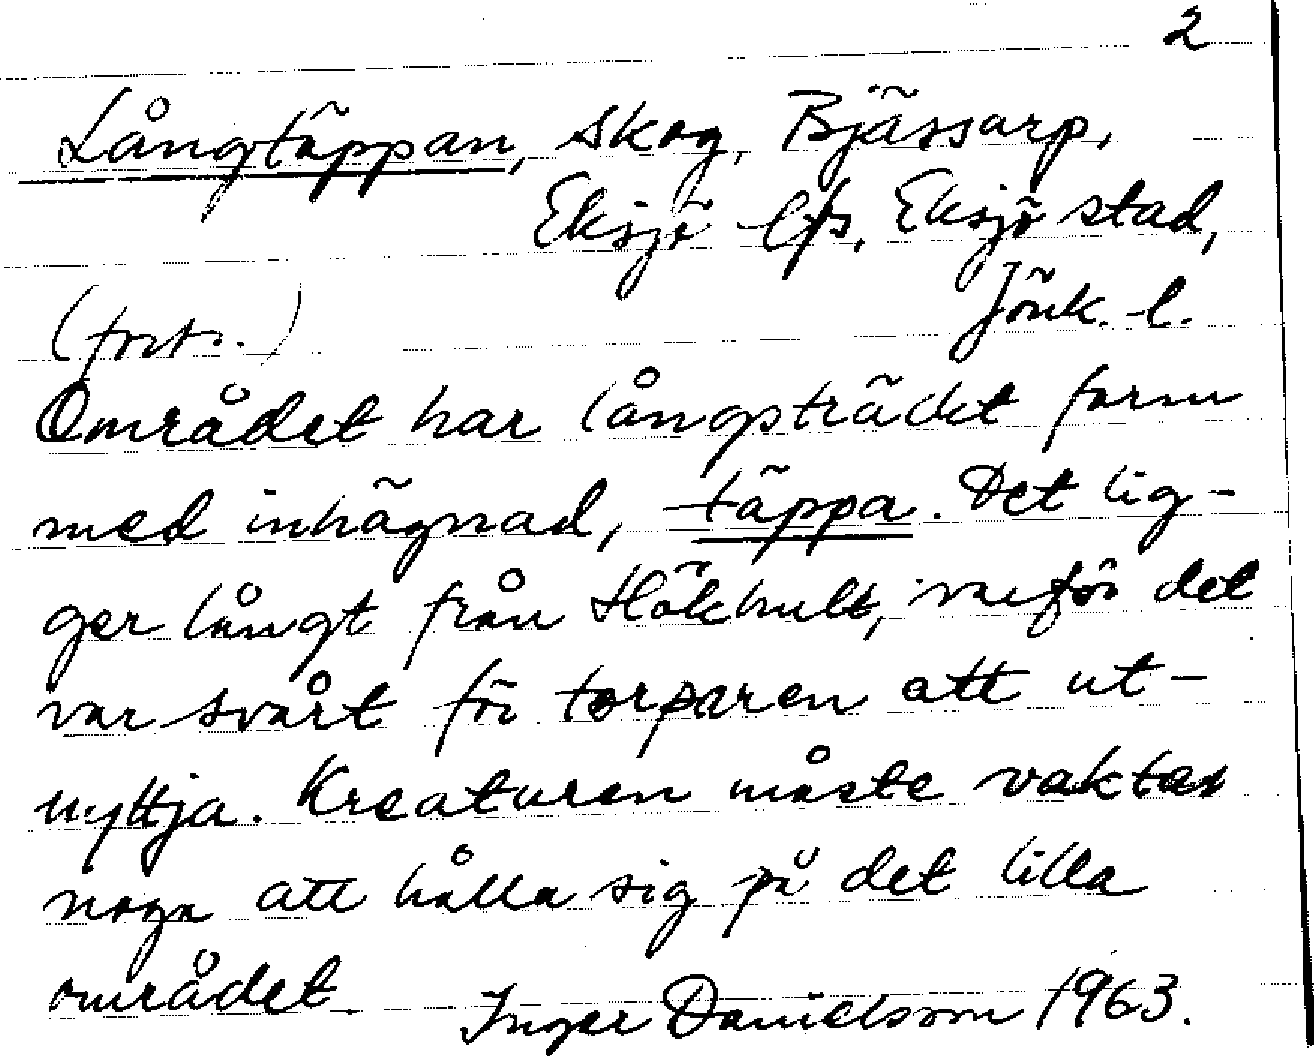 2
Långtäppan, skog, Bjässarp,
Eksjö lfs, Eksjö stad,
Jönk. l.
(forts.)
Området har långsträckt form
med inhägnad, täppa. Det lig-
ger långt från Hökhult, varför det
var svårt för torparen att ut-
nyttja. Kreaturen måste vaktas
noga att hålla sig på det lilla
området.
Inger Danielsson 1963.